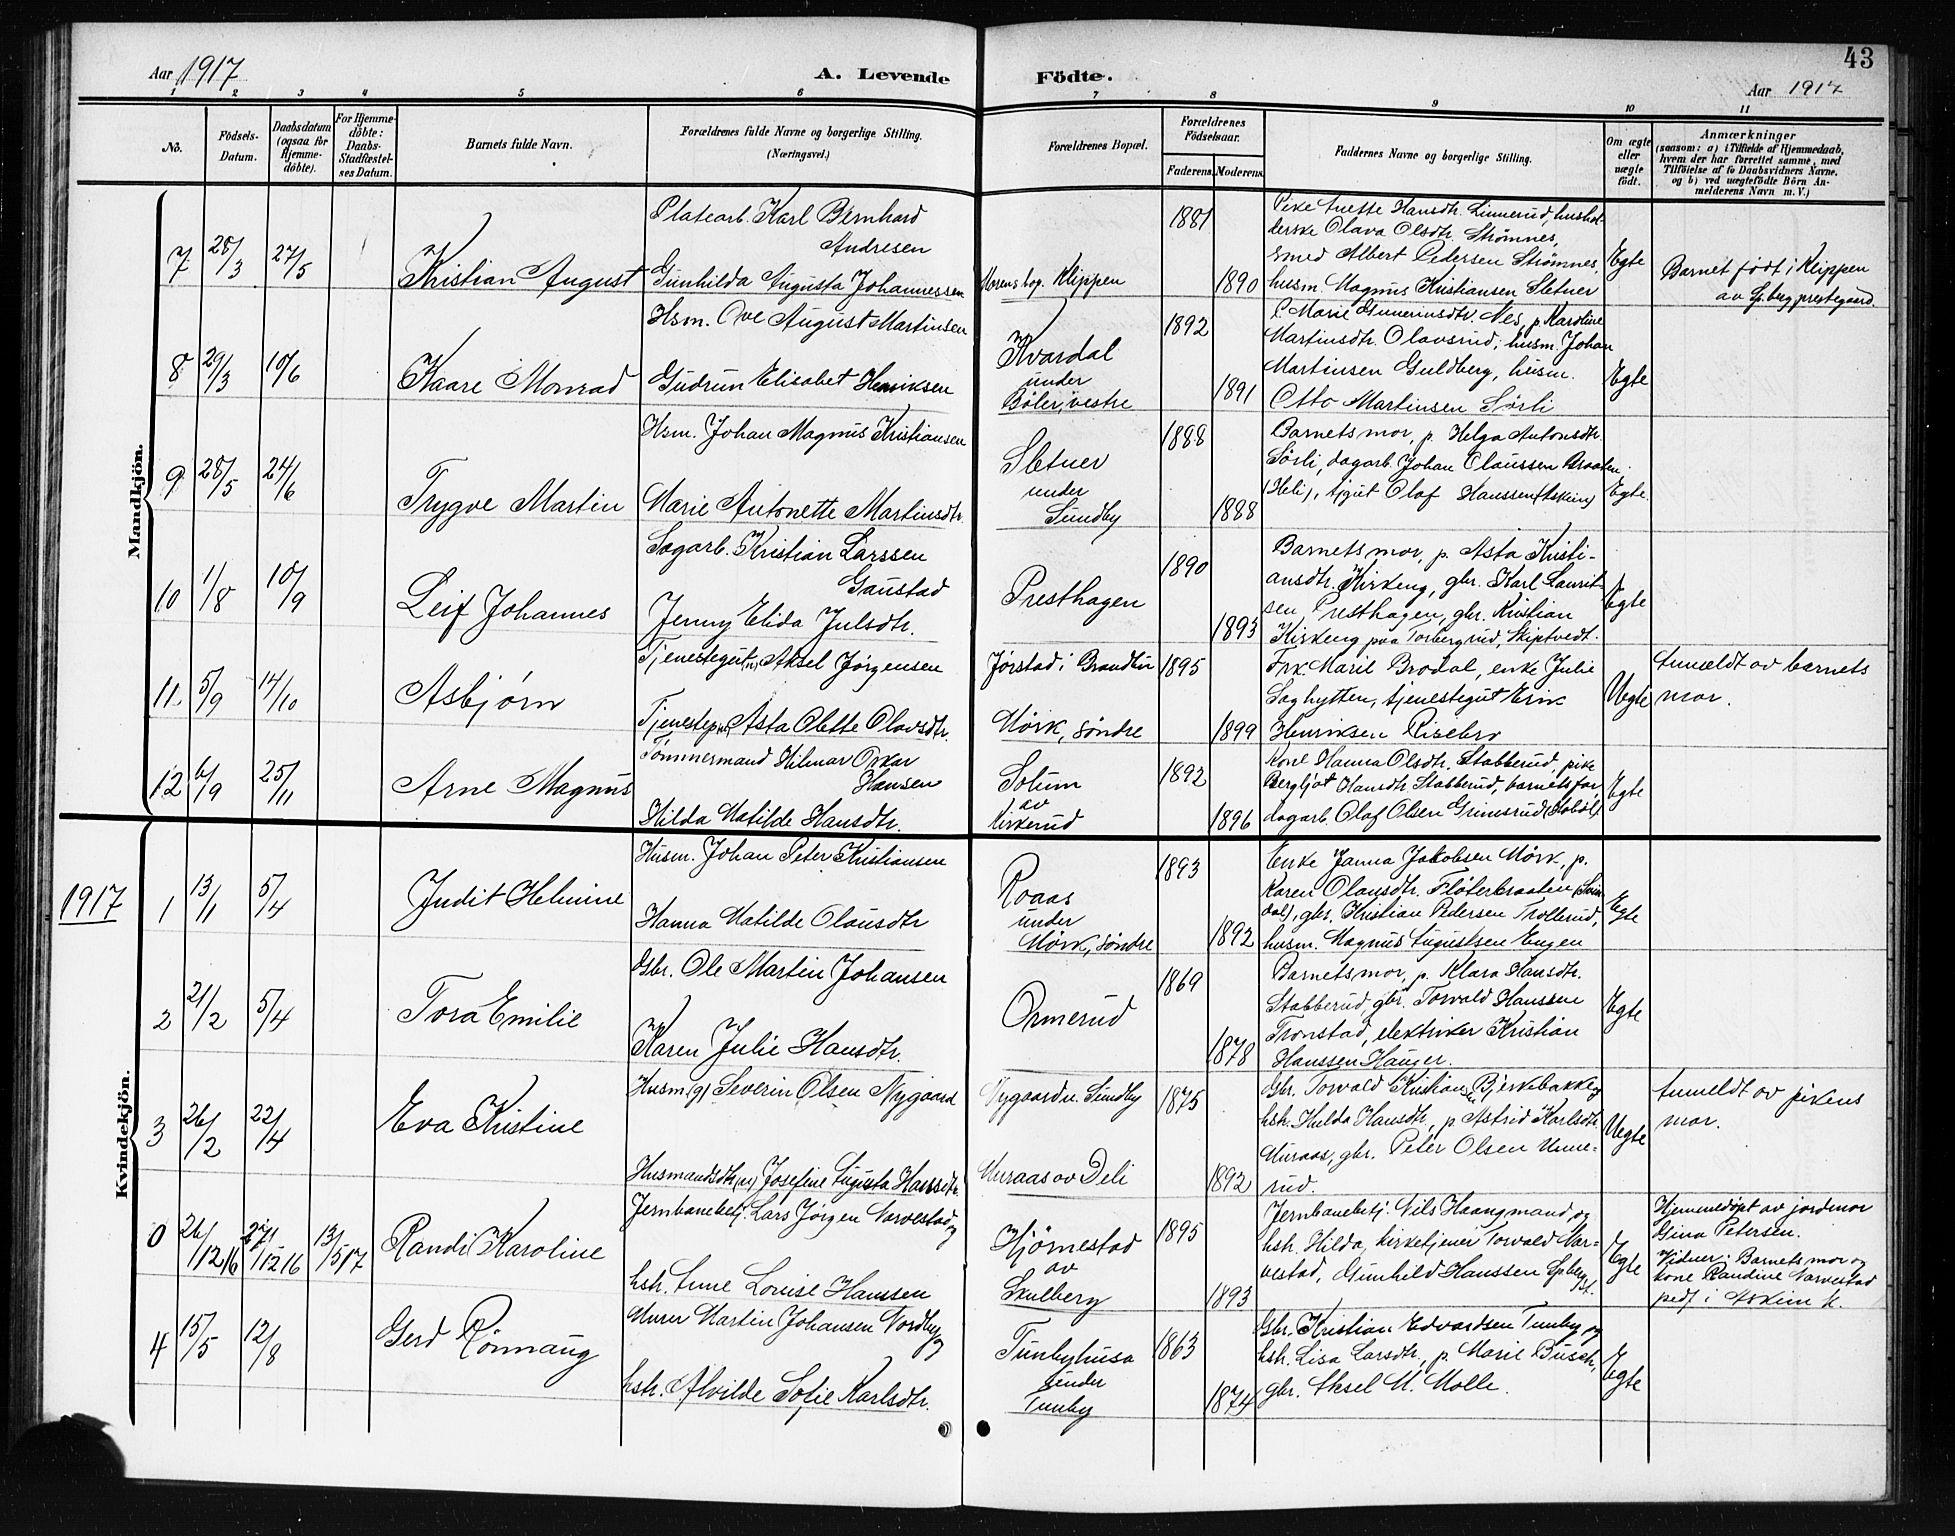 43
Aar 1917
A. Levende Födte.
Aar 1917
1 2 3 4 5 6 7 8 9 10 11
No.
Födsels-
Datum.
Daabsdatum
(ogsaa for
Hjemme-
döbte).
For Hjemme-
döbte:
Daabs-
Stadfæstel-
ses Datum.
Barnets fulde Navn.
Forældrenes fulde Navne og borgerlige Stilling.
(Næringsvei.)
Forældrenes Bopæl.
Forældrenes
Födselsaar.
Faderens. Moderens.
Faddernes Navne og borgerlige Stilling.
Om ægte
eller
uægte
födt.
Anmærkninger
(saasom: a) i Tilfælde af Hjemmedaab,
hvem der har forrettet samme, med
Tilföielse af to Daabsvidners Navne,
og b) ved uægtefödte Börn An-
melderens Navn m. V.)
Mandkjön.
7 28/3 27/5
Kristian August
Platearb. Karl Bernhard
Andresen
Gunhilda Augusta Johannessen
Morens bop. Klippen
1881
1890
Pike Anette Hansdtr. Linnerud, hushol-
derske Olava Olsdtr. Strømnes,
smed Albert Pedersen Strømnes,
husm. Magnus Kristiansen Sletner
Egte
Barnet født i Klippen
av Spberg prestegaard.
8 29/3 10/6
Kaare Monrad
Hsm. Ove August Martinsen
Gudrun Elisabet Henriksen
Kvardal
under
Bøler, vestre
1892
1891
Marie Gunneriusdtr. Nes, p. Karoline
Martinsdtr. Olavsrud, husm. Johan
Martinsen Guldberg, husm.
Otto Martinsen Sørli
Egte
9 28/5 24/6
Trygve Martin
Hsm. Johan Magnus Kristiansen
Marie Antonette Martinsdtr.
Sletner
under
Sundby
1888
1888
Barnets mor, p. Helga Antonsdtr.
Sørli, dagarb. Johan Olaussen Braaten
(Heli), tjgut Olaf Hanssen (Askim)
Egte
10 1/8 10/9
Leif Johannes
Sagarb. Kristian Larssen
Gaustad
Jenny Elida Julsdtr.
Presthagen
1890
1893
Barnets mor, p. Asta Kristi-
ansdtr. Kirkeng, gbr. Karl Laurit-
sen, Presthagen, gbr. Kristian
Kirkeng paa Torbergrud, Skiptvedt.
Egte
11 5/9 14/10
Asbjørn
Tjenestegut Aksel Jørgensen
Tjenestep. Asta Olette Olavsdtr.
Jørstad i Brandbu
Mørk, søndre
1895
1899
Frk. Marie Brodal, enke Julie
Saghytten, tjenestegut Erik
Henriksen Risebro
Uegte
Anmeldt av barnets
mor.
12 6/9 25/11
Arne Magnus
Tømmermand Hilmar Oskar
Hansen
Hilda Matilde Hansdtr.
Solum
av
Kirkerud
1892
1896
Kone Hanna Olsdtr. Stabberud, pike
Bergljot Hansdtr Stabberud, barnets far,
dagarb. Olaf Olsen Grimsrud (Hobøl)
Egte
1917
Kvindekjön.
1 13/1 5/4
Judit Helmine
Husm. Johan Peter Kristiansen
Hanna Matilde Olausdtr
Roaas
under
Mørk, søndre
1893
1892
Enke Janna Jakobsen Mørk, p.
Karen Olausdtr. Fløterbraaten (Svin-
dal), gbr. Kristian Pedersen Trollerud,
husm. Magnus Augustsen Engen
Egte
2 21/2 5/4
Tora Emilie
Gbr. Ole Martin Johansen
Karen Julie Hansdtr.
Ormerud
1869
1878
Barnets mor, p. Klara Hansdtr.
Stabberud, gbr. Torvald Hanssen
Tronstad, elektriker Kristian
Hanssen Hauger.
Egte
3 26/2 22/4
Eva Kristine
Husm (g) Severin Olsen Nygaard
Husmandsdtr (u) Josefine Augusta Hansdtr.
Nygaard u. Sundby
Muraas av Deli
1875
1892
Gbr. Torvald Kristiansen Bjerkebakke og
hstr. Hulda Hansdtr, p. Astrid Karlsdtr
Muraas, gbr. Peter Olsen Unne-
rud.
Uegte
Anmeldt av pikens
mor.
0 26/12 16 27/12 16 13/5 17
Randi Karoline
Jernbanebetj. Lars Jørgen Varvestad og
hstr. Anne Louise Hanssen
Hjørnestad
av
Skulberg
1895
1893
Jernbanebetj. Nils Haangmand og
hstr. Hilda, kirketjener Torvald Var-
vestad, Gunhild Hanssen Spberg st.
Egte
Hjemmedøpt av jordmor
Gina Petersen.
Vidner: Barnets mor og
kone Randine Varvestad
født i Askim k.
4 15/5 12/8
Gerd Rønnaug
Murer Martin Johansen Nordby og
hstr. Alvilde Sofie Karlsdtr.
Tunbyhusa
under
Tunby
1863
1874
Gbr. Kristian Edvardsen Tunby og
hstr. Lisa Larsdtr, p. Marie Busch,
gbr. Aksel M. Molle.
Egte